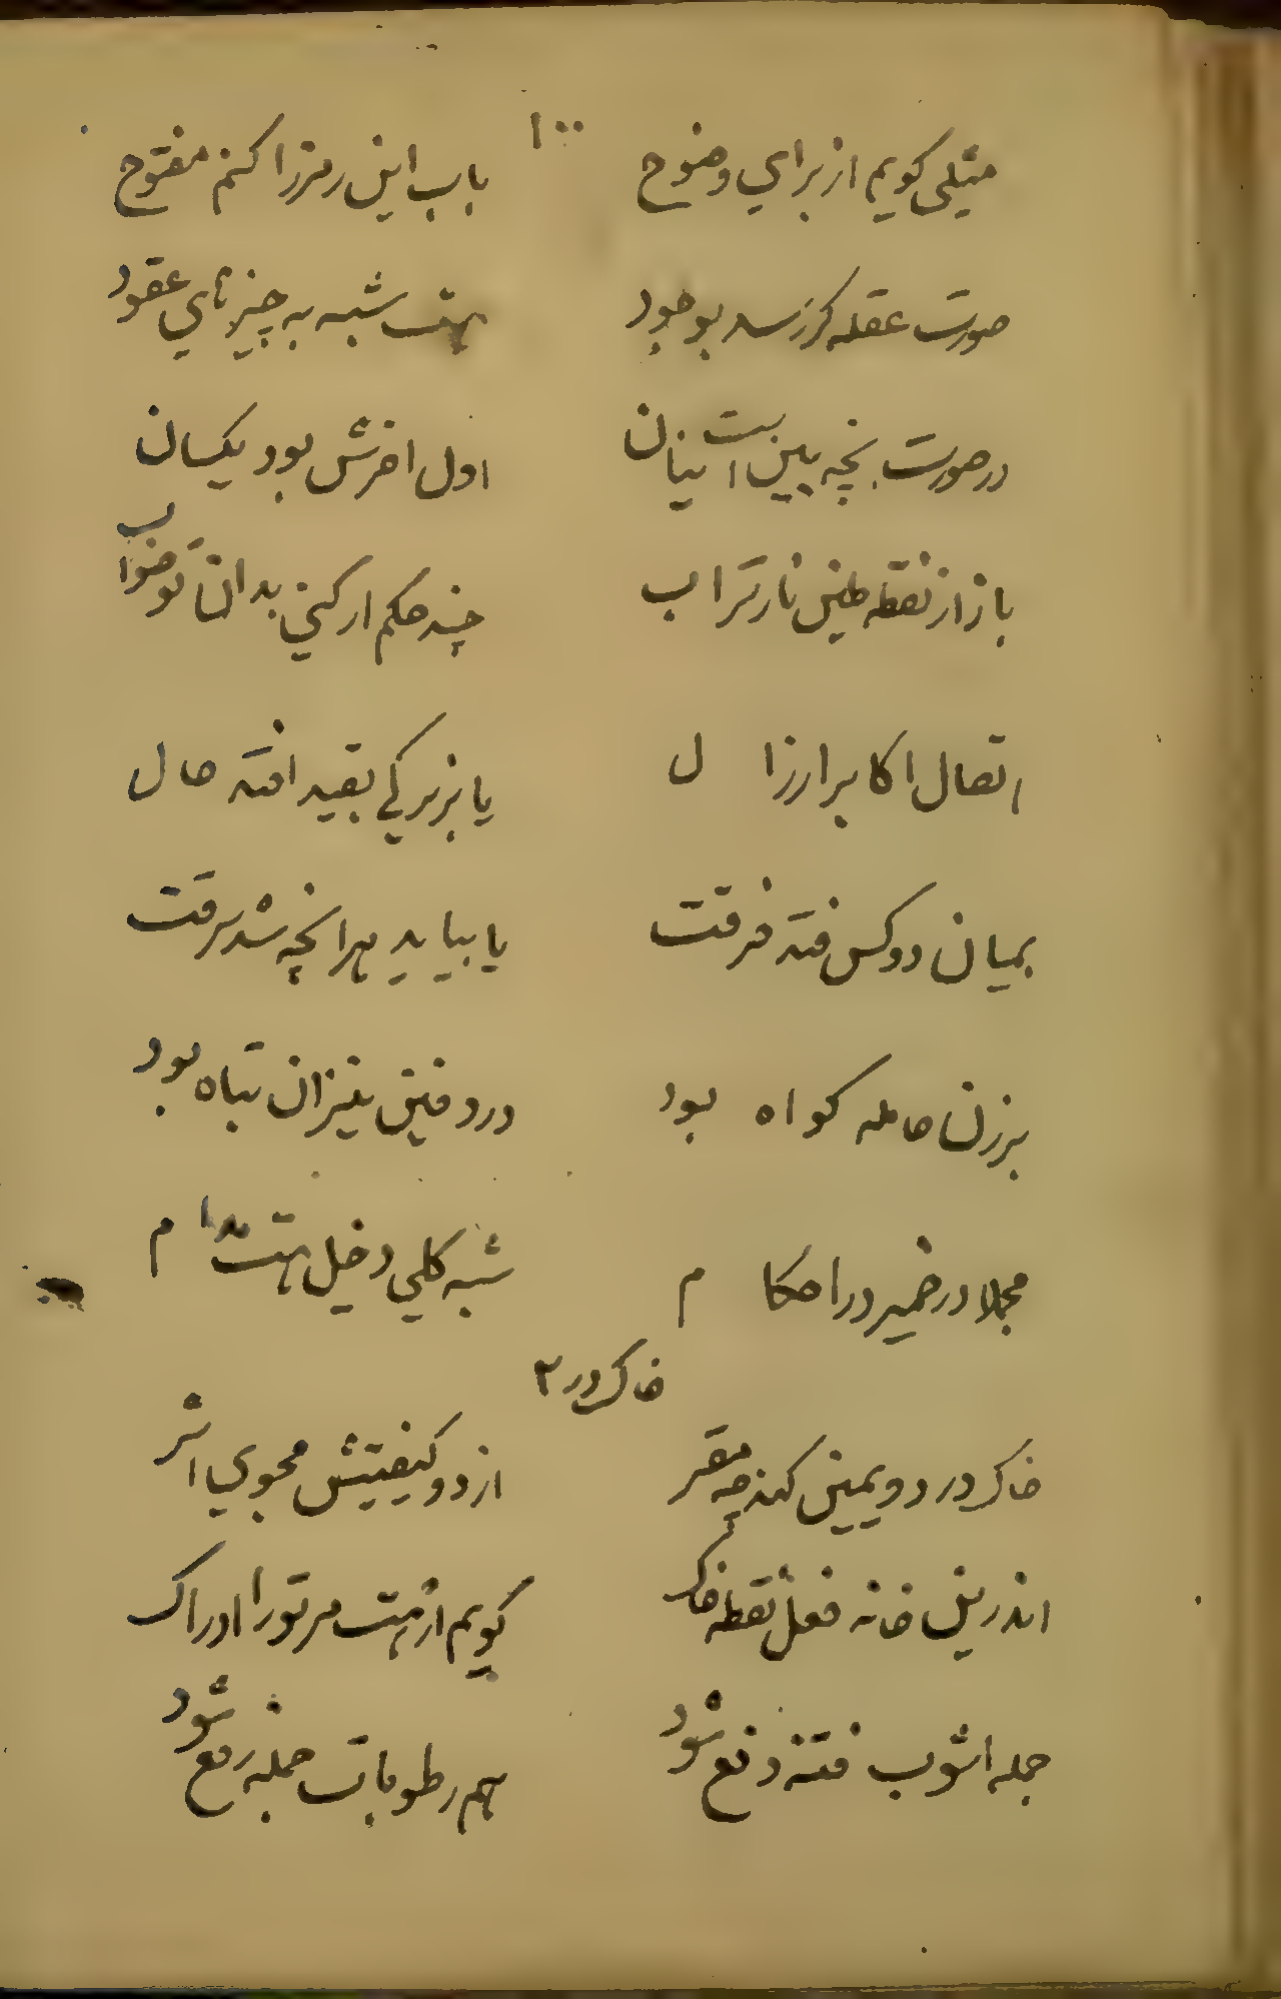 ۱۰۰
مثلی کویم از برای وضوح باب این رمز را کنم مفتوح
صورت عقله کر رسد بوجود هست شبه به چیزهای عقود
در صورت بچه بین است نیان اول اخرش بود یکسان
باز از نقطه طین نار تراب چند حکم ار کنی بدان تو صواب
اتصال اکابر ارزال یا بزیرکی بقید افتد حال
بمیان دو کس فتد فرقت یا بیاید هرانچه شد سرقت
بر زن حامله کواه بود در دفین نیزان تباه بود
مجملا در ضمیر در احکام شبه کلی دخیل هست مدام
خاک در ۲
خاک در دویمین کند چه مقر از دو کیفیتش مجوی اثر
اندرین خانه فعل نقطه خاک کویم ار هست مر تو را ادراک
جمله اشوب فتنه دفع شود هم رطوبات جمله رفع شود